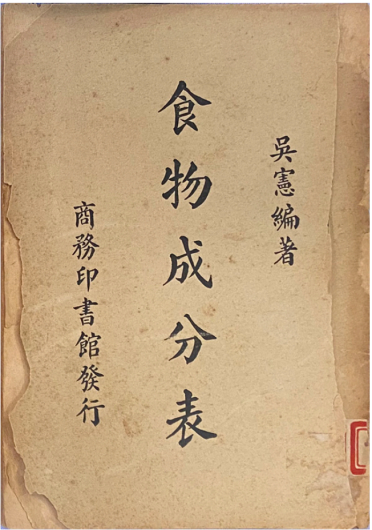 吳憲編著
食物成分表
商務印書館發行